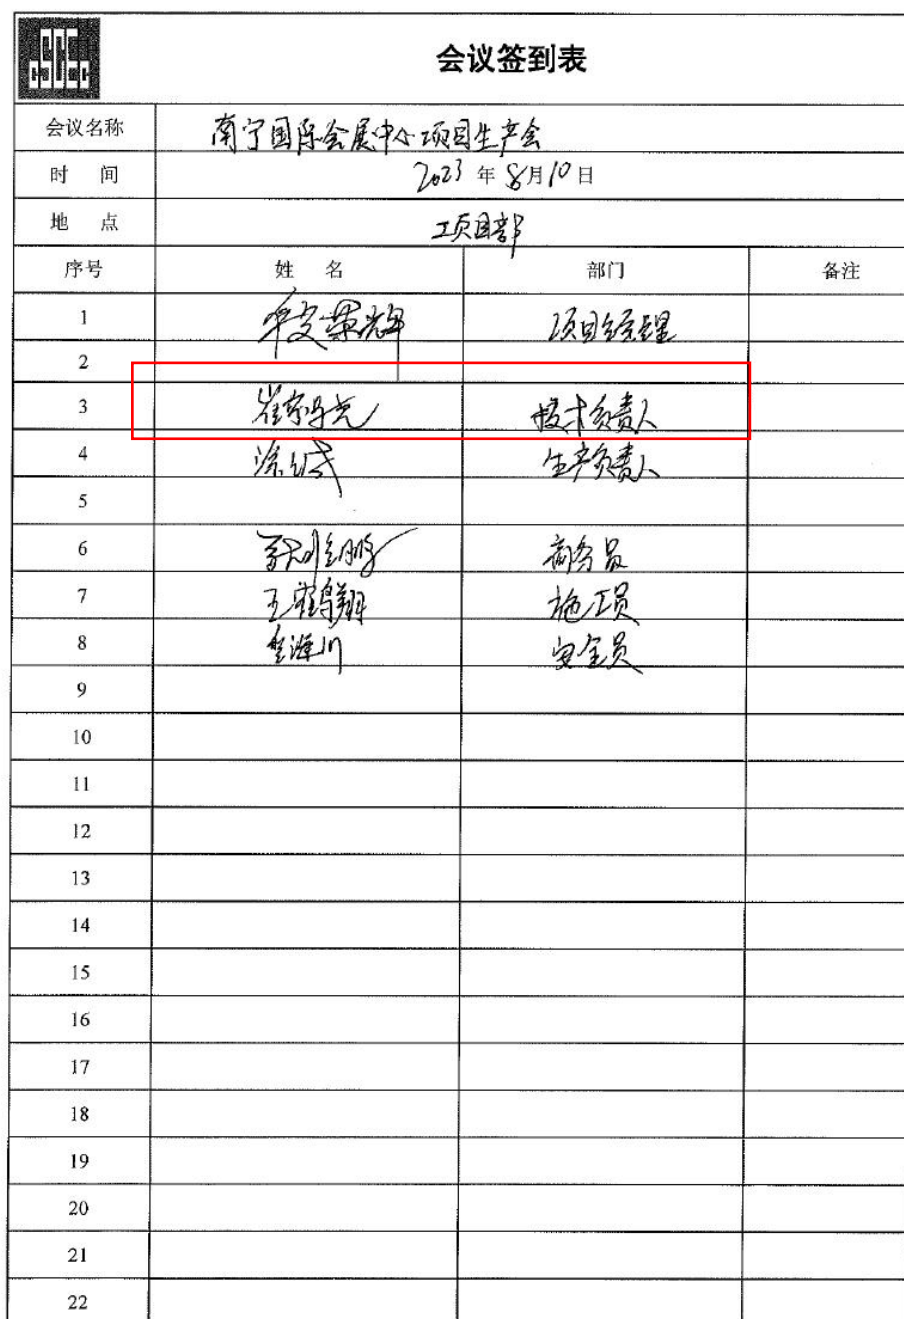 会议签到表
会议名称 南宁国际会展中心项目生产会
时 间 2023 年 8月10日
地 点 项目部
序号 姓 名 部门 备注
1 项目经理
2
3 崔 技术负责人
4 涂 生产负责人
5
6 商务员
7 王鹤翔 施工员
8 海川 安全员
9
10
11
12
13
14
15
16
17
18
19
20
21
22